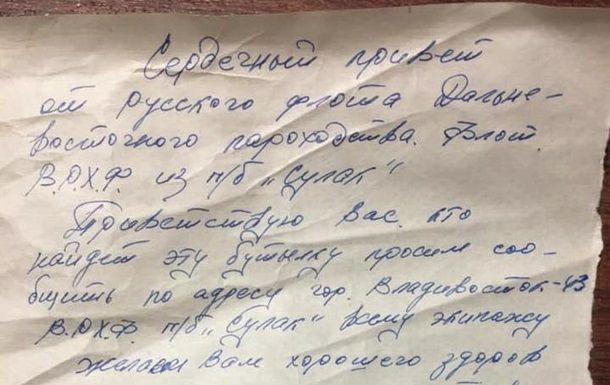 Сердечный привет
от русского флота Дальне-
восточного пароходства. Флот.
В.Р.Х.Ф. из п/б „Сулак“
Приветствую Вас кто
найдет эту бутылку просим соо-
бщить по адресу гор. Владивосток-43
В.Р.Х.Ф. п/б „Сулак“ всему экипажу
желаем Вам хорошего здоров